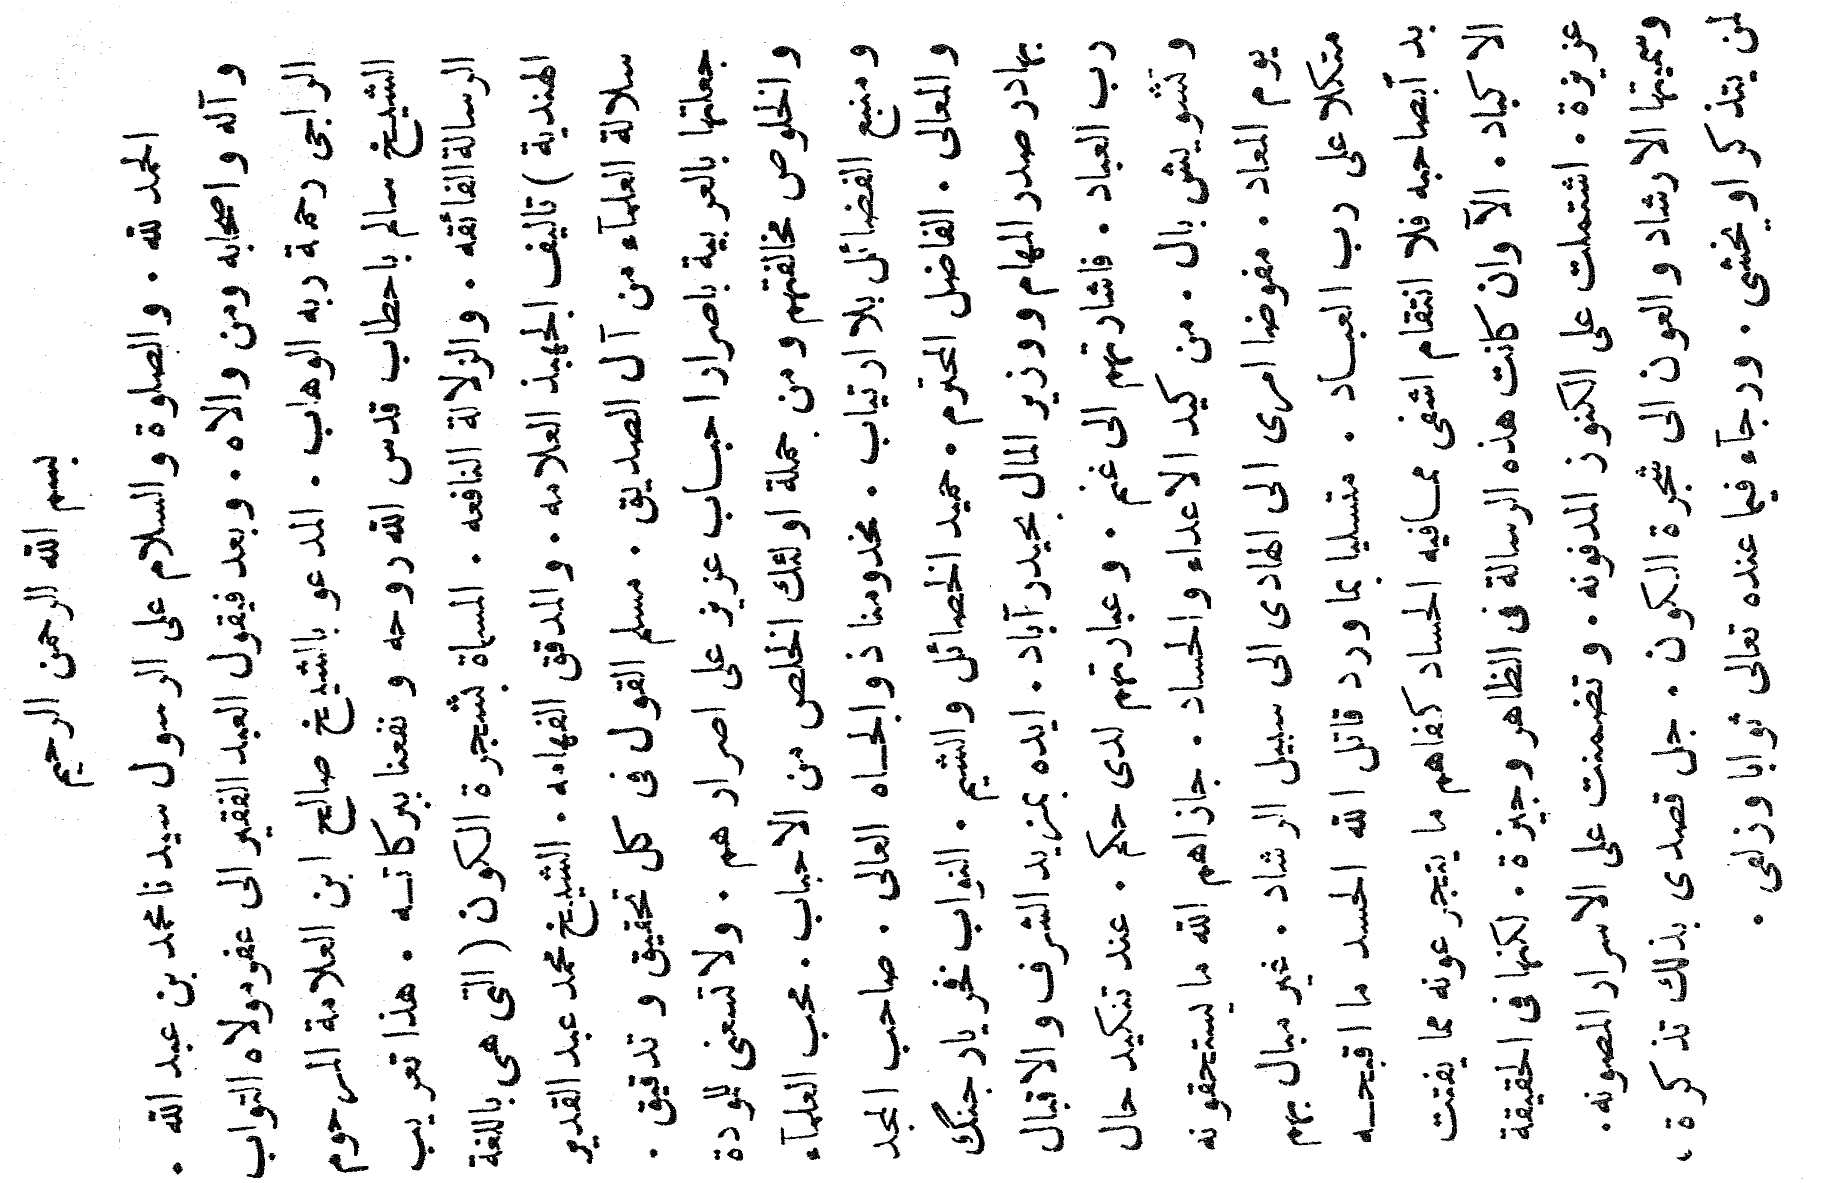 بسم الله الرحمن الرحيم
الحمد لله . والصلوة والسلام على الرسول سيدنا محمد بن عبد الله .
وآله واصحابه ومن والاه . وبعد فيقول العبد الفقير الى عفو مولاه التواب
الراجى رحمة ربه الوهاب . المدعو بالشيخ صالح ابن العلامة المرحوم
الشيخ سالم باحطاب قدس الله روحه و نفعنا ببركاته . هذا تعريب
الرسالة الفائقه . والزلالة النافعه . المسماة بشجرة الكون ( التى هى باللغة
الهندية ) تاليف الجهبذ العلامه . والمدقق الفهامه . الشيخ محمد عبد القدير
سلالة العلمآء من آل الصديق . مسلم القول فى كل تحقيق و تدقيق .
جعلتها بالعربية باصرار احباب عزيز على اصرارهم . ولا تسعنى للودة
والخلوص مخالفتهم ومن جملة اولئك الخلص من الاحباب . محب العلمآء
ومنبع الفضائل بلا ارتياب . مخدومنا ذو الجاه العالى . صاحب المجد
والمعالى . الفاضل المحترم . حميد الخصائل والشيم . النواب فخر يار جنگ
بهادر صدر المهام ووزير المال بحيدرآباد . ايده بمزيد الشرف والاقبال
رب العباد . فاشارتهم الى غنم . وعبارتهم لدى حكم . عند تنكيد حال
وتشويش بال . من كيد الاعداء والحساد . جازاهم الله ما يستحقونه
يوم المعاد . مفوضا امرى الى الهادى الى سبيل الرشاد . غير مبال بهم
متكلا على رب العباد . متسليا بما ورد قاتل الله الحسد ما اقبحه
بد أبصاحبه فلا انتقام اشفى ممافيه الحساد كفاهم ما يتجرعونه مما يفتت
الاكباد . الآوان كانت هذه الرسالة فى الظاهر وجيزة . لكنها فى الحقيقة
عزيزة . اشتملت على الكنوز المدفونه . وتضمنت على الاسرار المصونه .
وسميتها الارشاد والعون الى شجرة الكون . جل قصدى بذلك تذكرة ،
لمن يتذكر او يخشى . ورجآء فيما عنده تعالى ثوابا وزلفى .